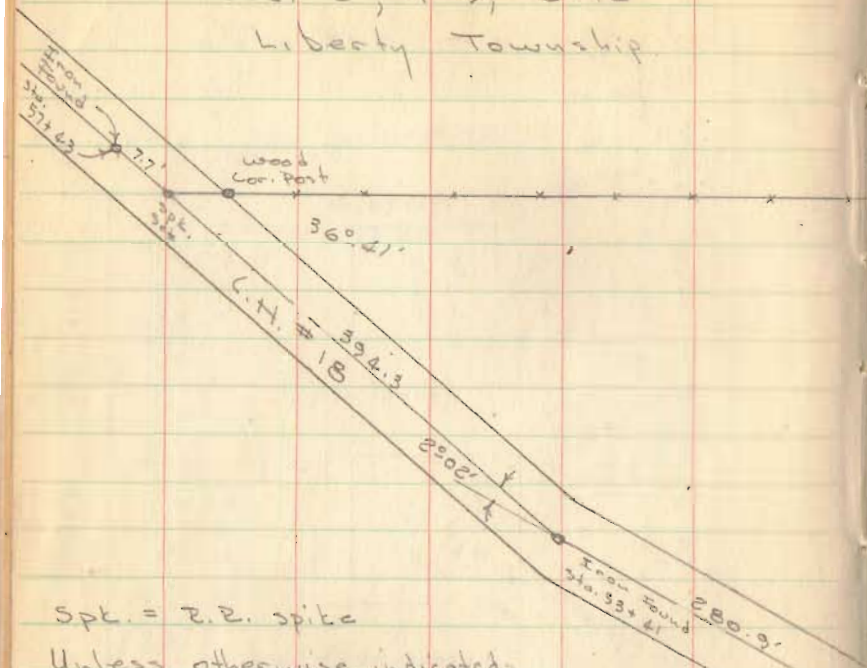 Liberty Township.
Iron
Found
Sta.
57+43
7.7'
wood
Cor. Post
Spk.
Set
36°.41'
C.H. # 18
394.3
2°02'
Iron Found
Sta. 53+41
280.9'
Spk. = R.R. spike
Unless otherwise indicated